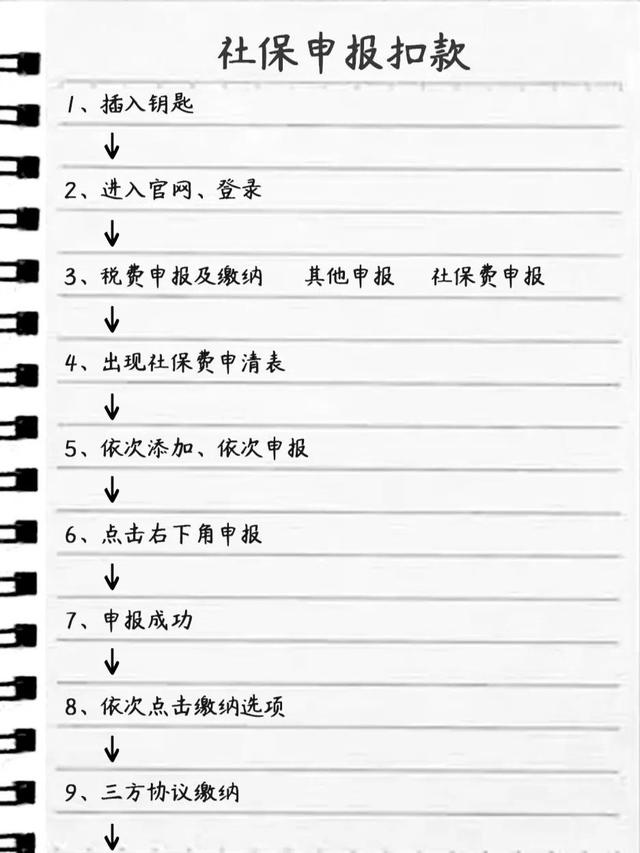 社保申报扣款
1、插入钥匙
↓
2、进入官网、登录
↓
3、税费申报及缴纳 其他申报 社保费申报
↓
4、出现社保费申清表
↓
5、依次添加、依次申报
↓
6、点击右下角申报
↓
7、申报成功
↓
8、依次点击缴纳选项
↓
9、三方协议缴纳
↓